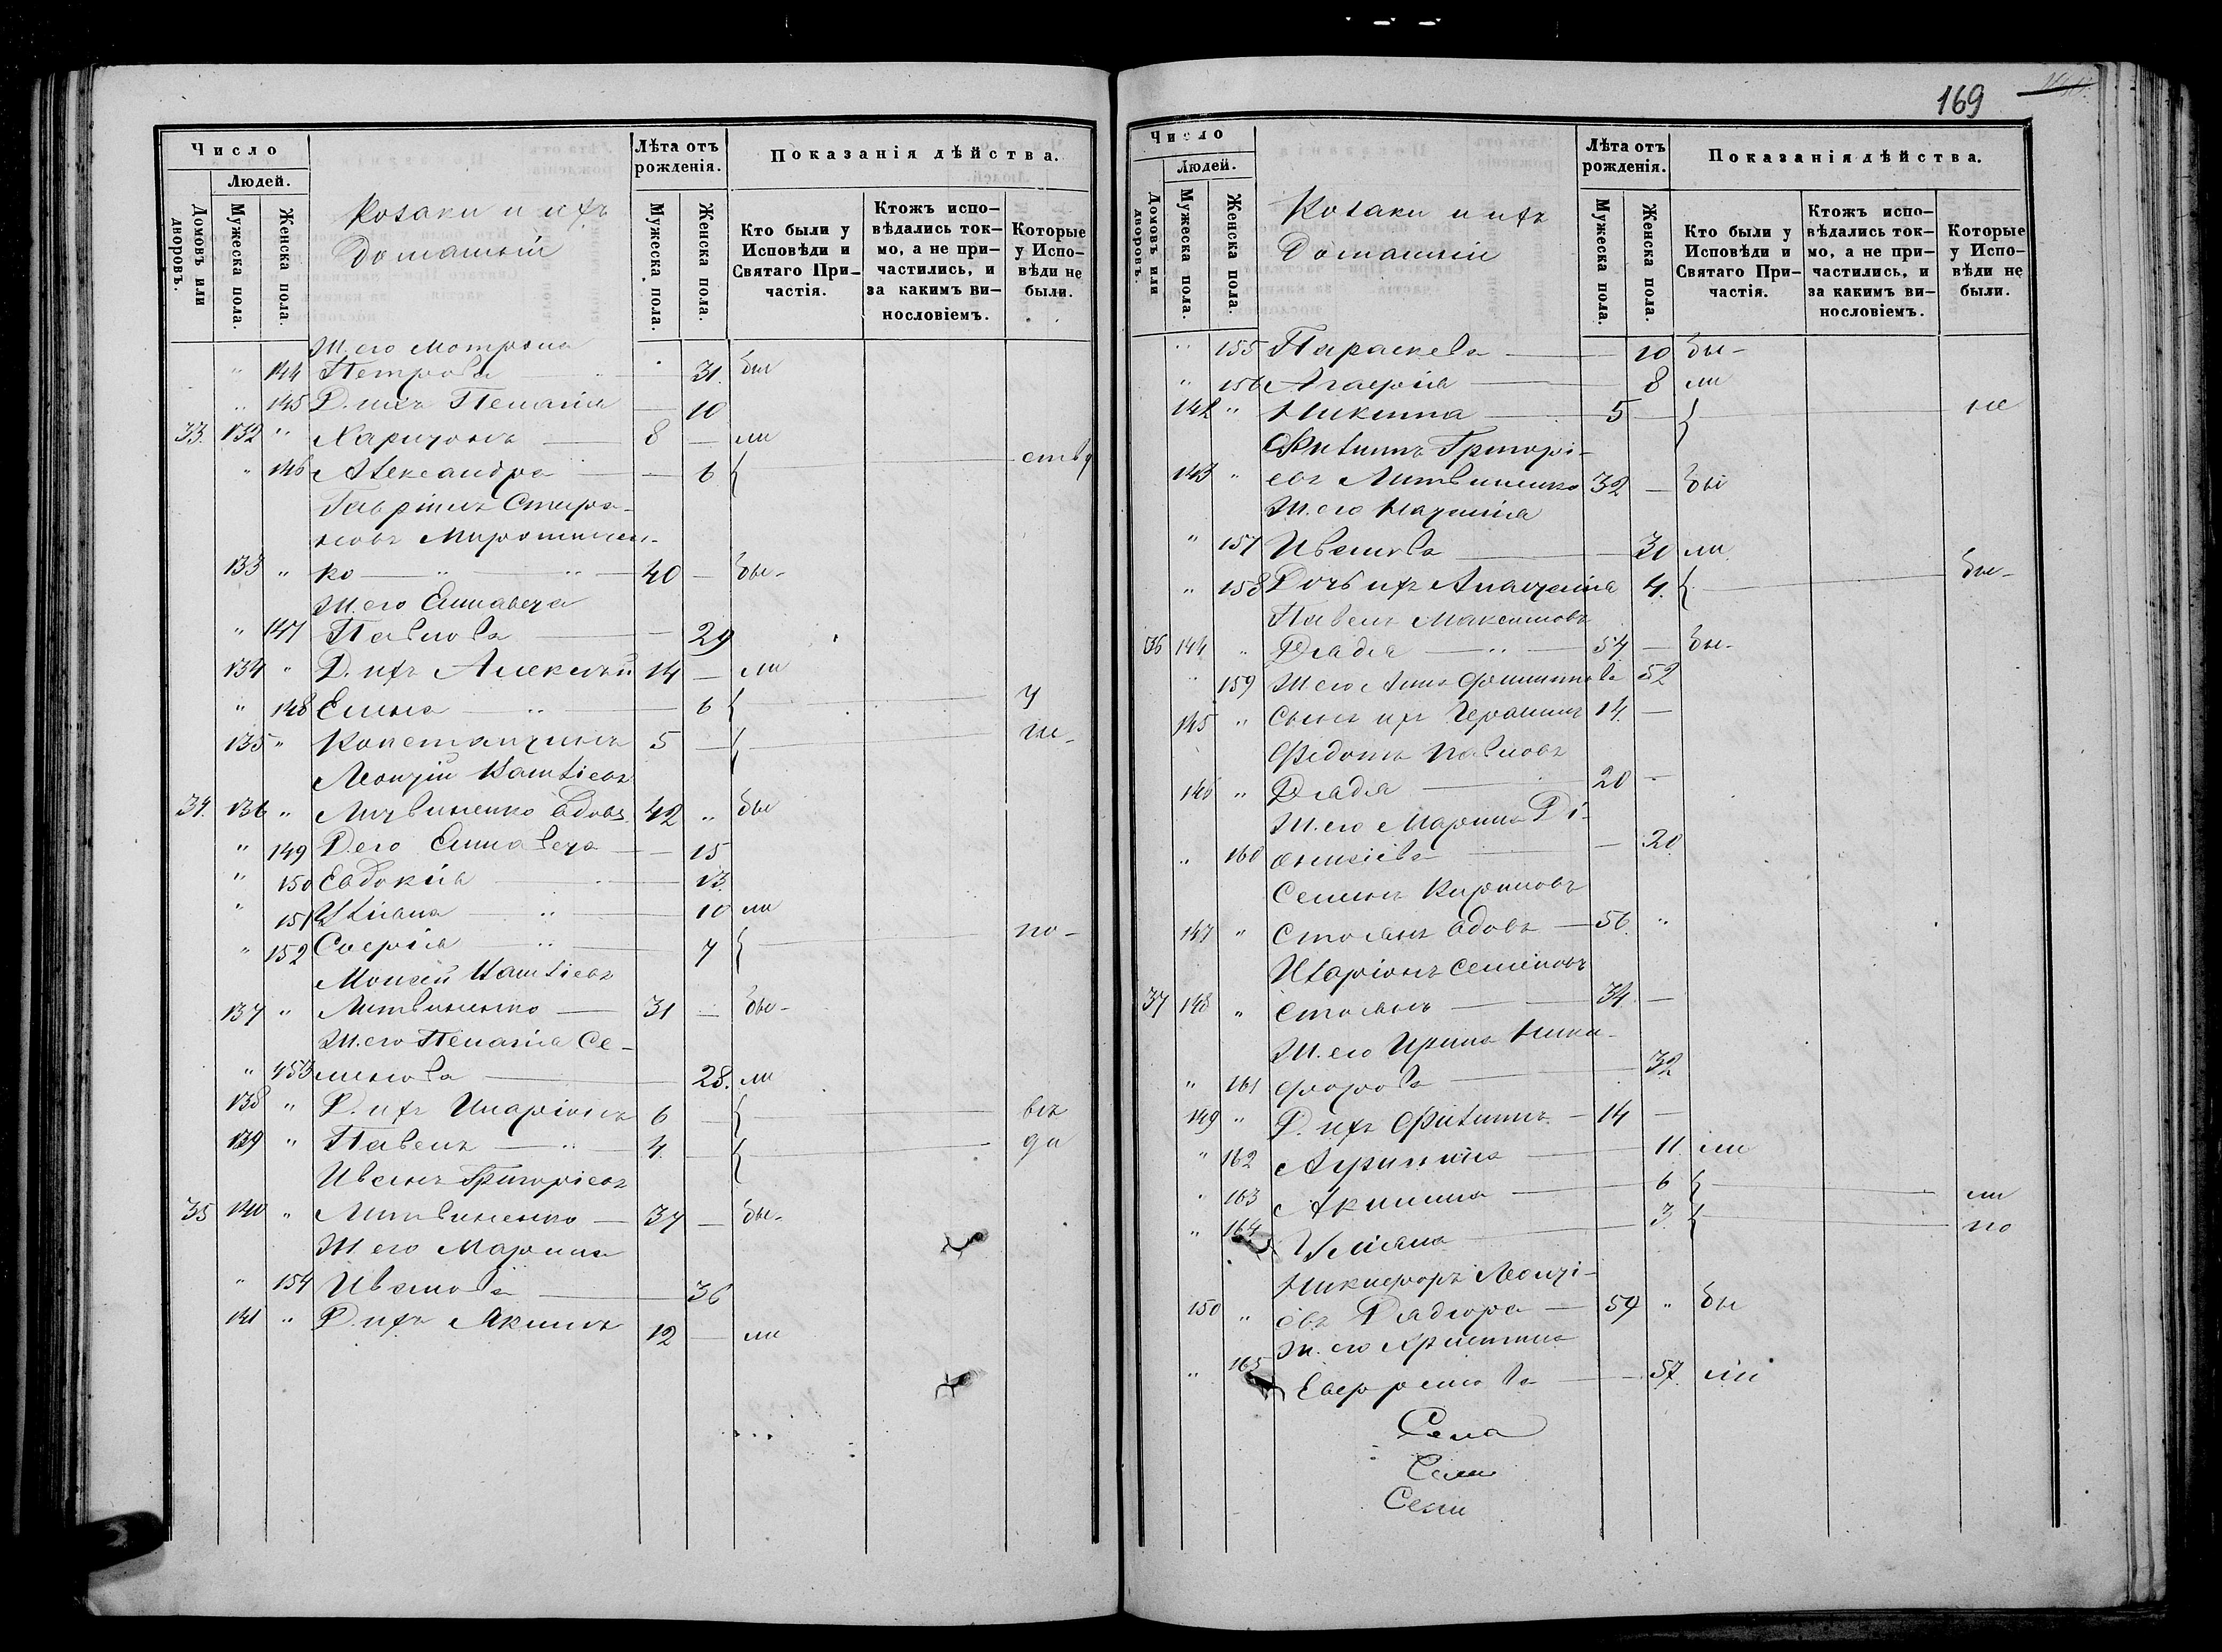 169
Число
Людей.
Домовъ или дворовъ.
Мужеска пола.
Женска пола.
Козаки и ихъ
Домашніи
Лѣта отъ рожденія.
Мужеска пола.
Женска пола.
Показанія дѣйства.
Кто были у Исповѣди и Святаго Причастія.
Ктожъ исповѣдались токмо, а не причастились, и за какимъ винословіемъ.
Которые у Исповѣди не были.
Ж. его Мотрона
" 144 Петрова 31. бы
" 145 Д. ихъ Пелагія 10
33. 132 " Харитонъ 8 — ли
" 146 Александра — 6
Гавріилъ Спиридо-
новъ Мирошничен-
133 " ко 40 — бы-
Ж. его Елисавета
" 147 Павлова — 29
134 " Д. ихъ Алексѣй 14 — ли
" 148 Елена 6 у
135 " Константинъ 5 — ли-
Леонтій Матвіевъ
34. 136 " Литвиненко вдовъ 42 " бы
" 149 Д. его Елисавета — 15
" 150 Евдокія 13.
" 151 Уліана 10 ли
" 152 Софія 7 по-
Моисей Матвіевъ
137 " Литвиненко 31 — бы-
Ж. его Пелагія Се-
" 153 менова 28. ли
138 " Д. ихъ Иларіонъ 6 —
139 " Павелъ 4. —
Иванъ Григоріевъ
35 140 " Литвиненко 37 — бы-
Ж его Марина
" 154 Иванова 36
141 " Д. ихъ Акимъ 12 — ли
Число
Людей.
Домовъ или дворовъ.
Мужеска пола.
Женска пола.
Козаки и ихъ
Домашніи
Лѣта отъ рожденія.
Мужеска пола.
Женска пола.
Показанія дѣйства.
Кто были у Исповѣди и Святаго Причастія.
Ктожъ исповѣдались токмо, а не причастились, и за какимъ винословіемъ.
Которые у Исповѣди не были.
" 155 Параскева — 10 бы-
" 156 Агафія 8 ли
142 " Никита 5 — не
Филипъ Григорі-
143 " евъ Литвиненко 32 — бы
Ж. его Наталія
" 157 Иванова — 30 ли
" 158 Дочь ихъ Анастасія 4. бы-
Павелъ Максимовъ
36 144 " Дзядзя 54 — бы-
" 159 Ж его Анна Филиппова 52
145 " Сынъ ихъ Герасимъ 14. —
Федотъ Павловъ
146 " 20 —
Ж. его Марина Ді-
" 160 онисіева — 20.
Семенъ Кириловъ
147 " Стоянъ вдовъ — 56. "
Иларіонъ Семеновъ
37 148 " Стоянъ 34. —
Ж. его Ирина Ники-
" 161 форова 32
149 " Д. ихъ Филипъ — 14 —
" 162 11. ли
" 163 Акилина 6 ли
" 164 Уліана 3. но
Никифоръ Леонті-
150 " евъ 59 " бы
Ж. его Христина
" 165 Евфремова — 57. ли
Села
Села
Сели